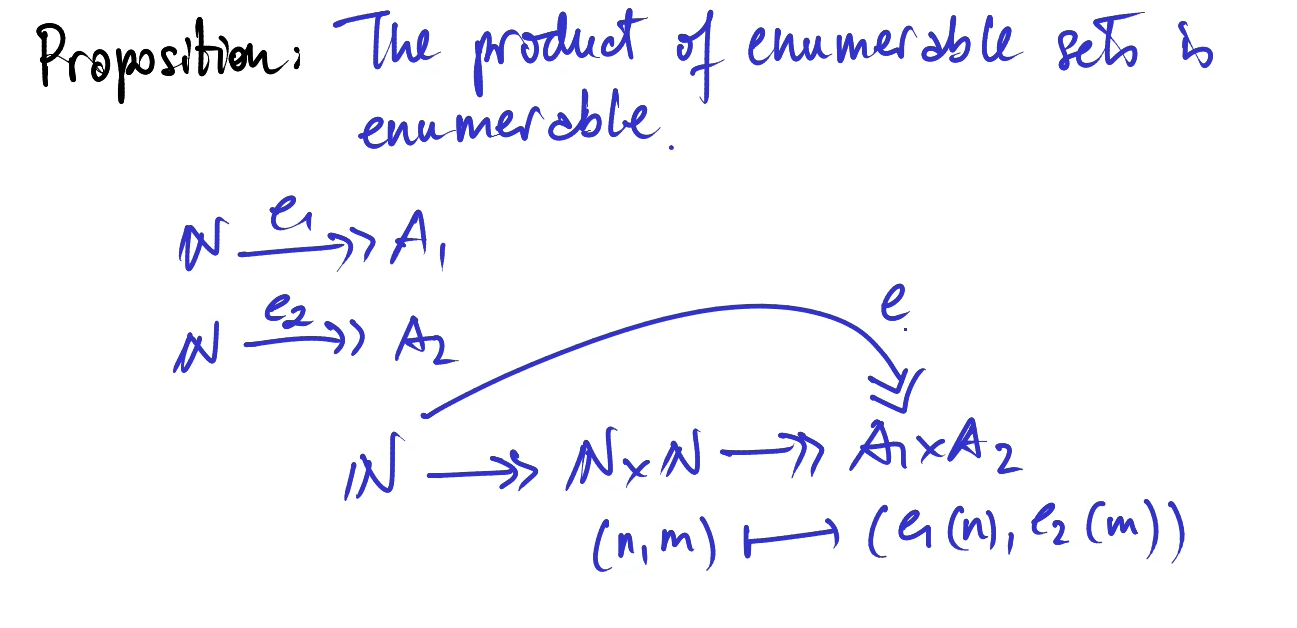 Proposition: The product of enumerable sets is
enumerable.
ℕ e₁ ↠ A₁
ℕ e₂ ↠ A₂
e
ℕ ↠ ℕ×ℕ ↠ A₁×A₂
(n,m) ⟼ (e₁(n), e₂(m))